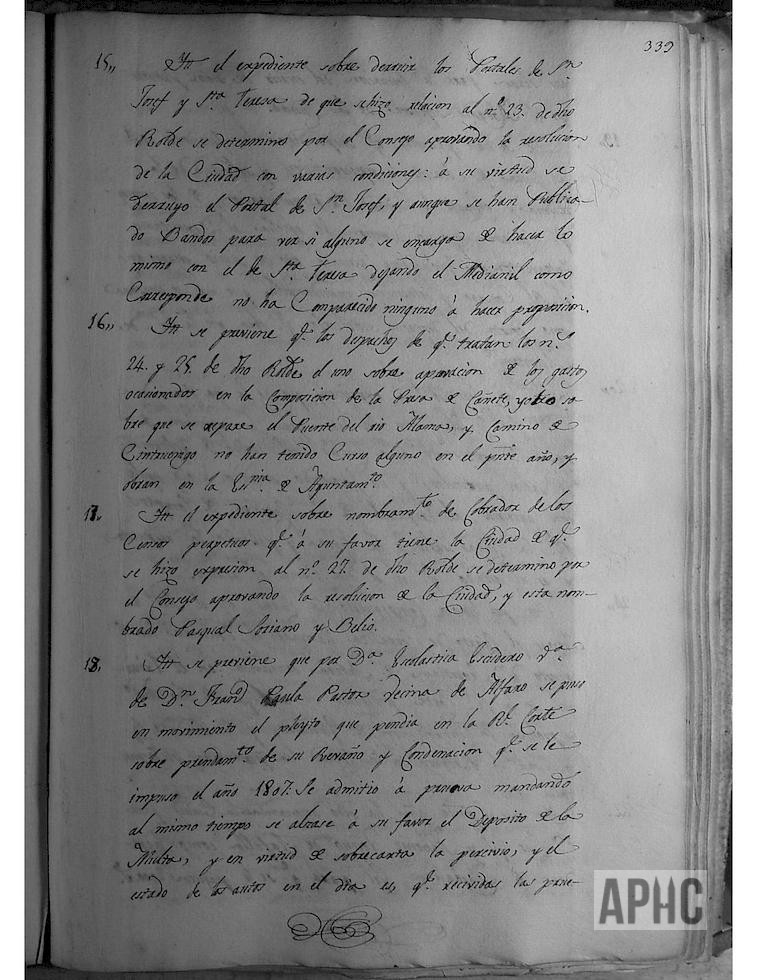 339
15,, Itt el expediente sobre derruir los Portales de Sn
Josef y Sta Teresa de que se hizo relacion al no 23. de dho
Rolde se determino por el Consejo aprovando la resolucion
de la Ciudad con varias condiciones: á su virtud se
derruyo el Portal de Sn Josef, y aunque se han Publica-
do Bandos para ver si alguno se encarga de hacer lo
mismo con el de Sta Teresa dejando el Medianil como
Corresponde no ha Comparecido ninguno á hacer proposicion.
16,, Itt se previene qe los despachos de qe tratan los no
24. y 25. de dho Rolde el uno sobre aprovacion de los gastos
ocasionados en la Composicion de la Presa de Cañete, y otro so-
bre que se repare el Puente del rio Alama, y Camino de
Cintruenigo no han tenido Curso alguno en el pnte año, y
obran en la Esnia de Ayuntamto
17,, Itt el expediente sobre nombramto de Cobrador de los
Censos perpetuos qe á su favor tiene la Ciudad de qe
se hizo expresion al no 27. de dho Rolde se determino por
el Consejo aprovando la resolucion de la Ciudad, y esta nom-
brado Pasqual Soriano y Belio.
18,, Itt se previene que por Da Escolastica Escudero Va
de Dn Frando Paula Pastor vecina de Alfaro se puso
en movimiento el pleyto que pendia en la Rl Corte
sobre prendamto de su Revaño y Condenacion qe se le
impuso el año 1807: Se admitio á prueva mandando
al mismo tiempo se alzase á su favor el Deposito de la
Multa, y en virtud de sobrecarta la percivio, y el
estado de los autos en el dia es, qe recividas las prue-
APHC